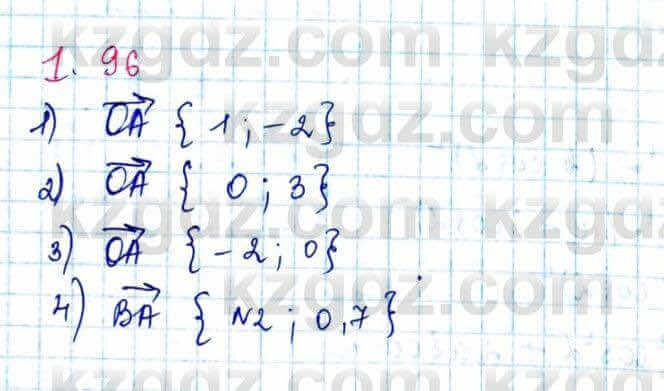 kzgdz.com kzgdz.com
1. 96
1) OA { 1 ; -2 }
kzgdz.com kzgdz.com
2) OA { 0 ; 3 }
kzgdz.com kzgdz.com
3) OA { -2 ; 0 }
4) BA { N2 ; 0,7 }
kzgdz.com kzgdz.com